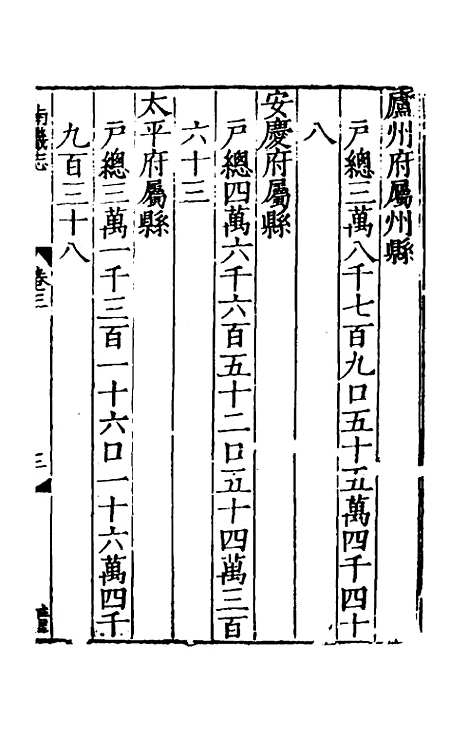 廬州府屬州縣
戶總三萬八千七百九口五十五萬四千四十
八
安慶府屬縣
戶總四萬六千六百五十二口五十四萬三百
六十三
太平府屬縣
戶總三萬一千三百一十六口一十六萬四千
九百三十八
南 志 卷三 三